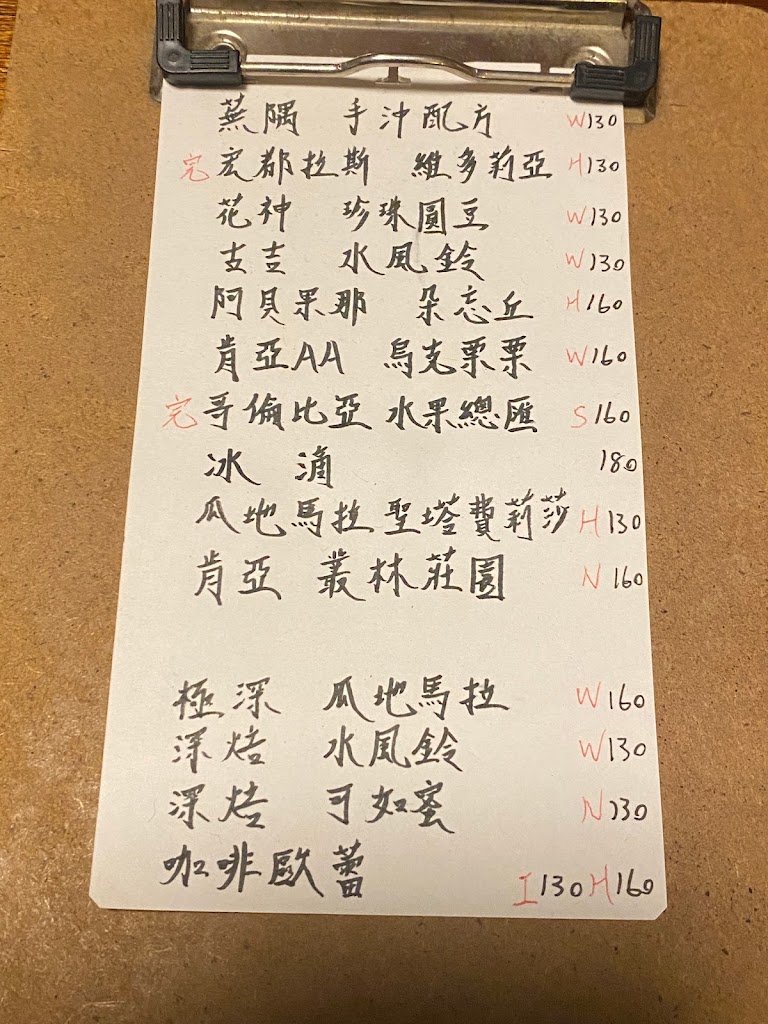 蕪隅 手沖配方 W130
完 宏都拉斯 維多莉亞 H130
花神 珍珠圓豆 W130
古吉 水風鈴 W130
阿貝果那 朵忘丘 H160
肯亞AA 烏克栗栗 W160
完 哥倫比亞 水果總匯 S160
冰滴 180
瓜地馬拉聖塔費莉莎 H130
肯亞 叢林莊園 N160
極深 瓜地馬拉 W160
深焙 水風鈴 W130
深焙 可如蜜 N130
咖啡歐蕾 I130 H160